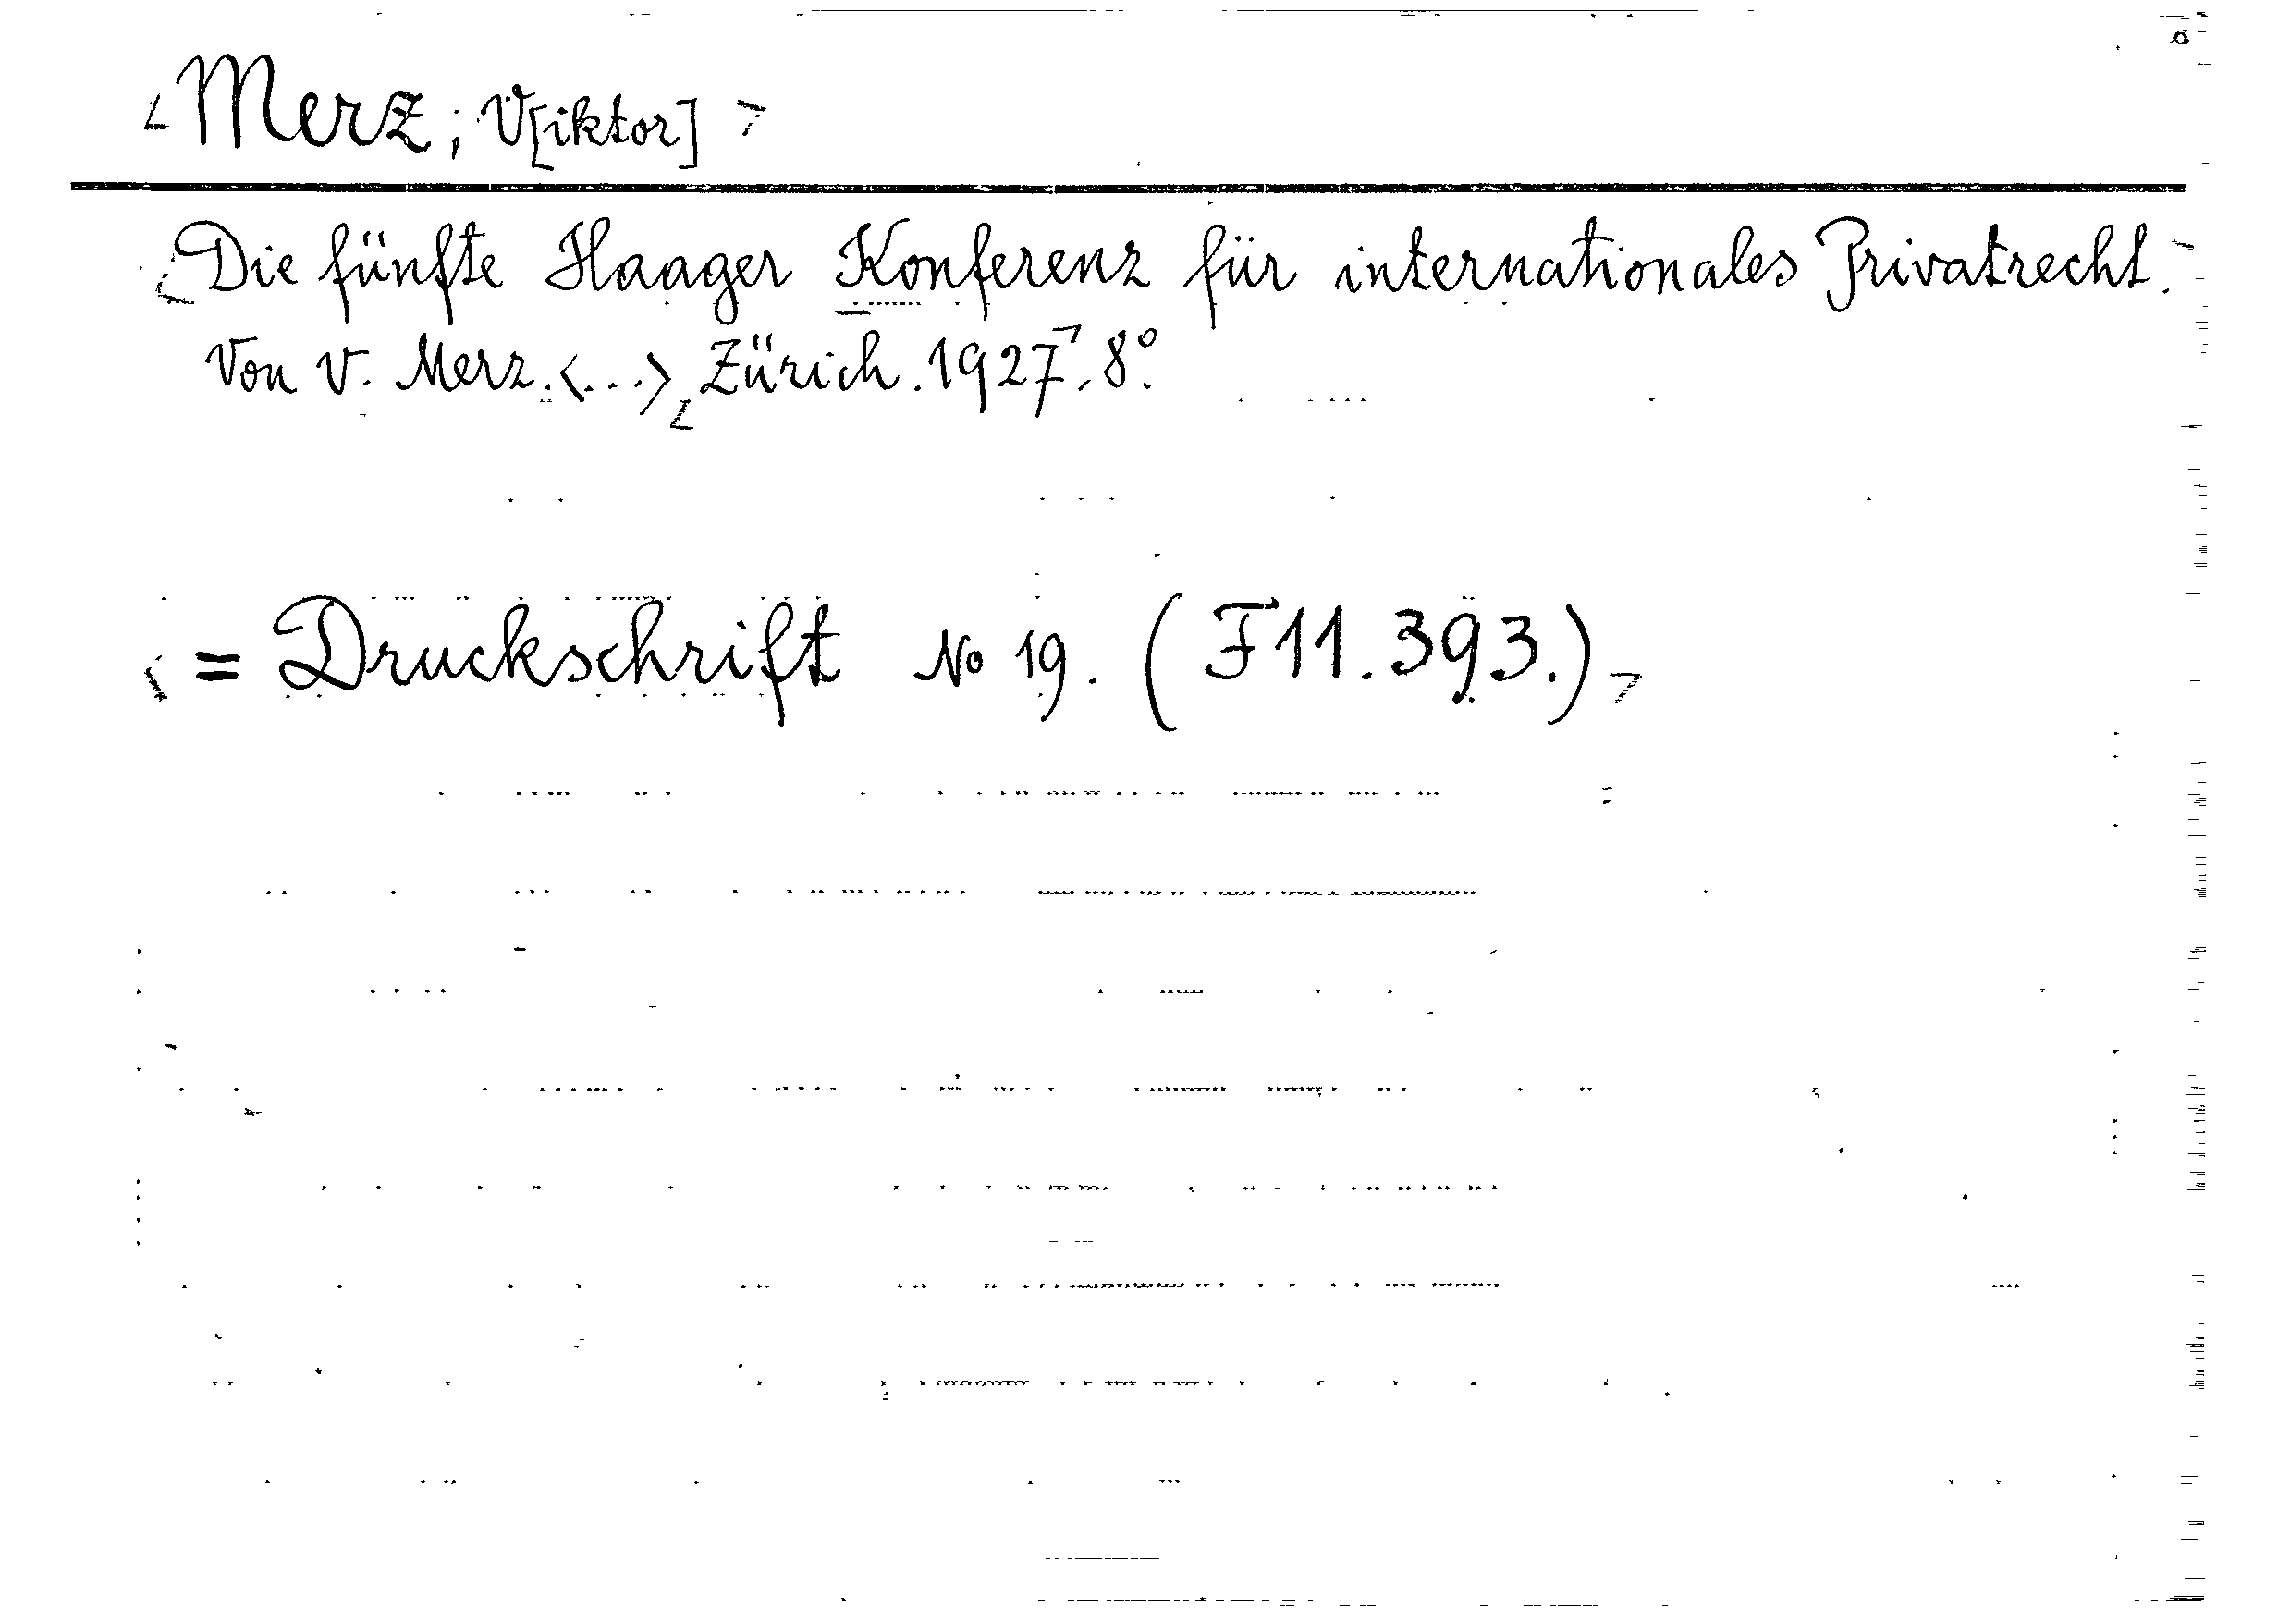 Merz; V[iktor]
Die fünfte Haager Konferenz für internationales Privatrecht.
Von V. Merz. <...> Zürich. 1927. 8°.
= Druckschrift No 19. (F11.393.)